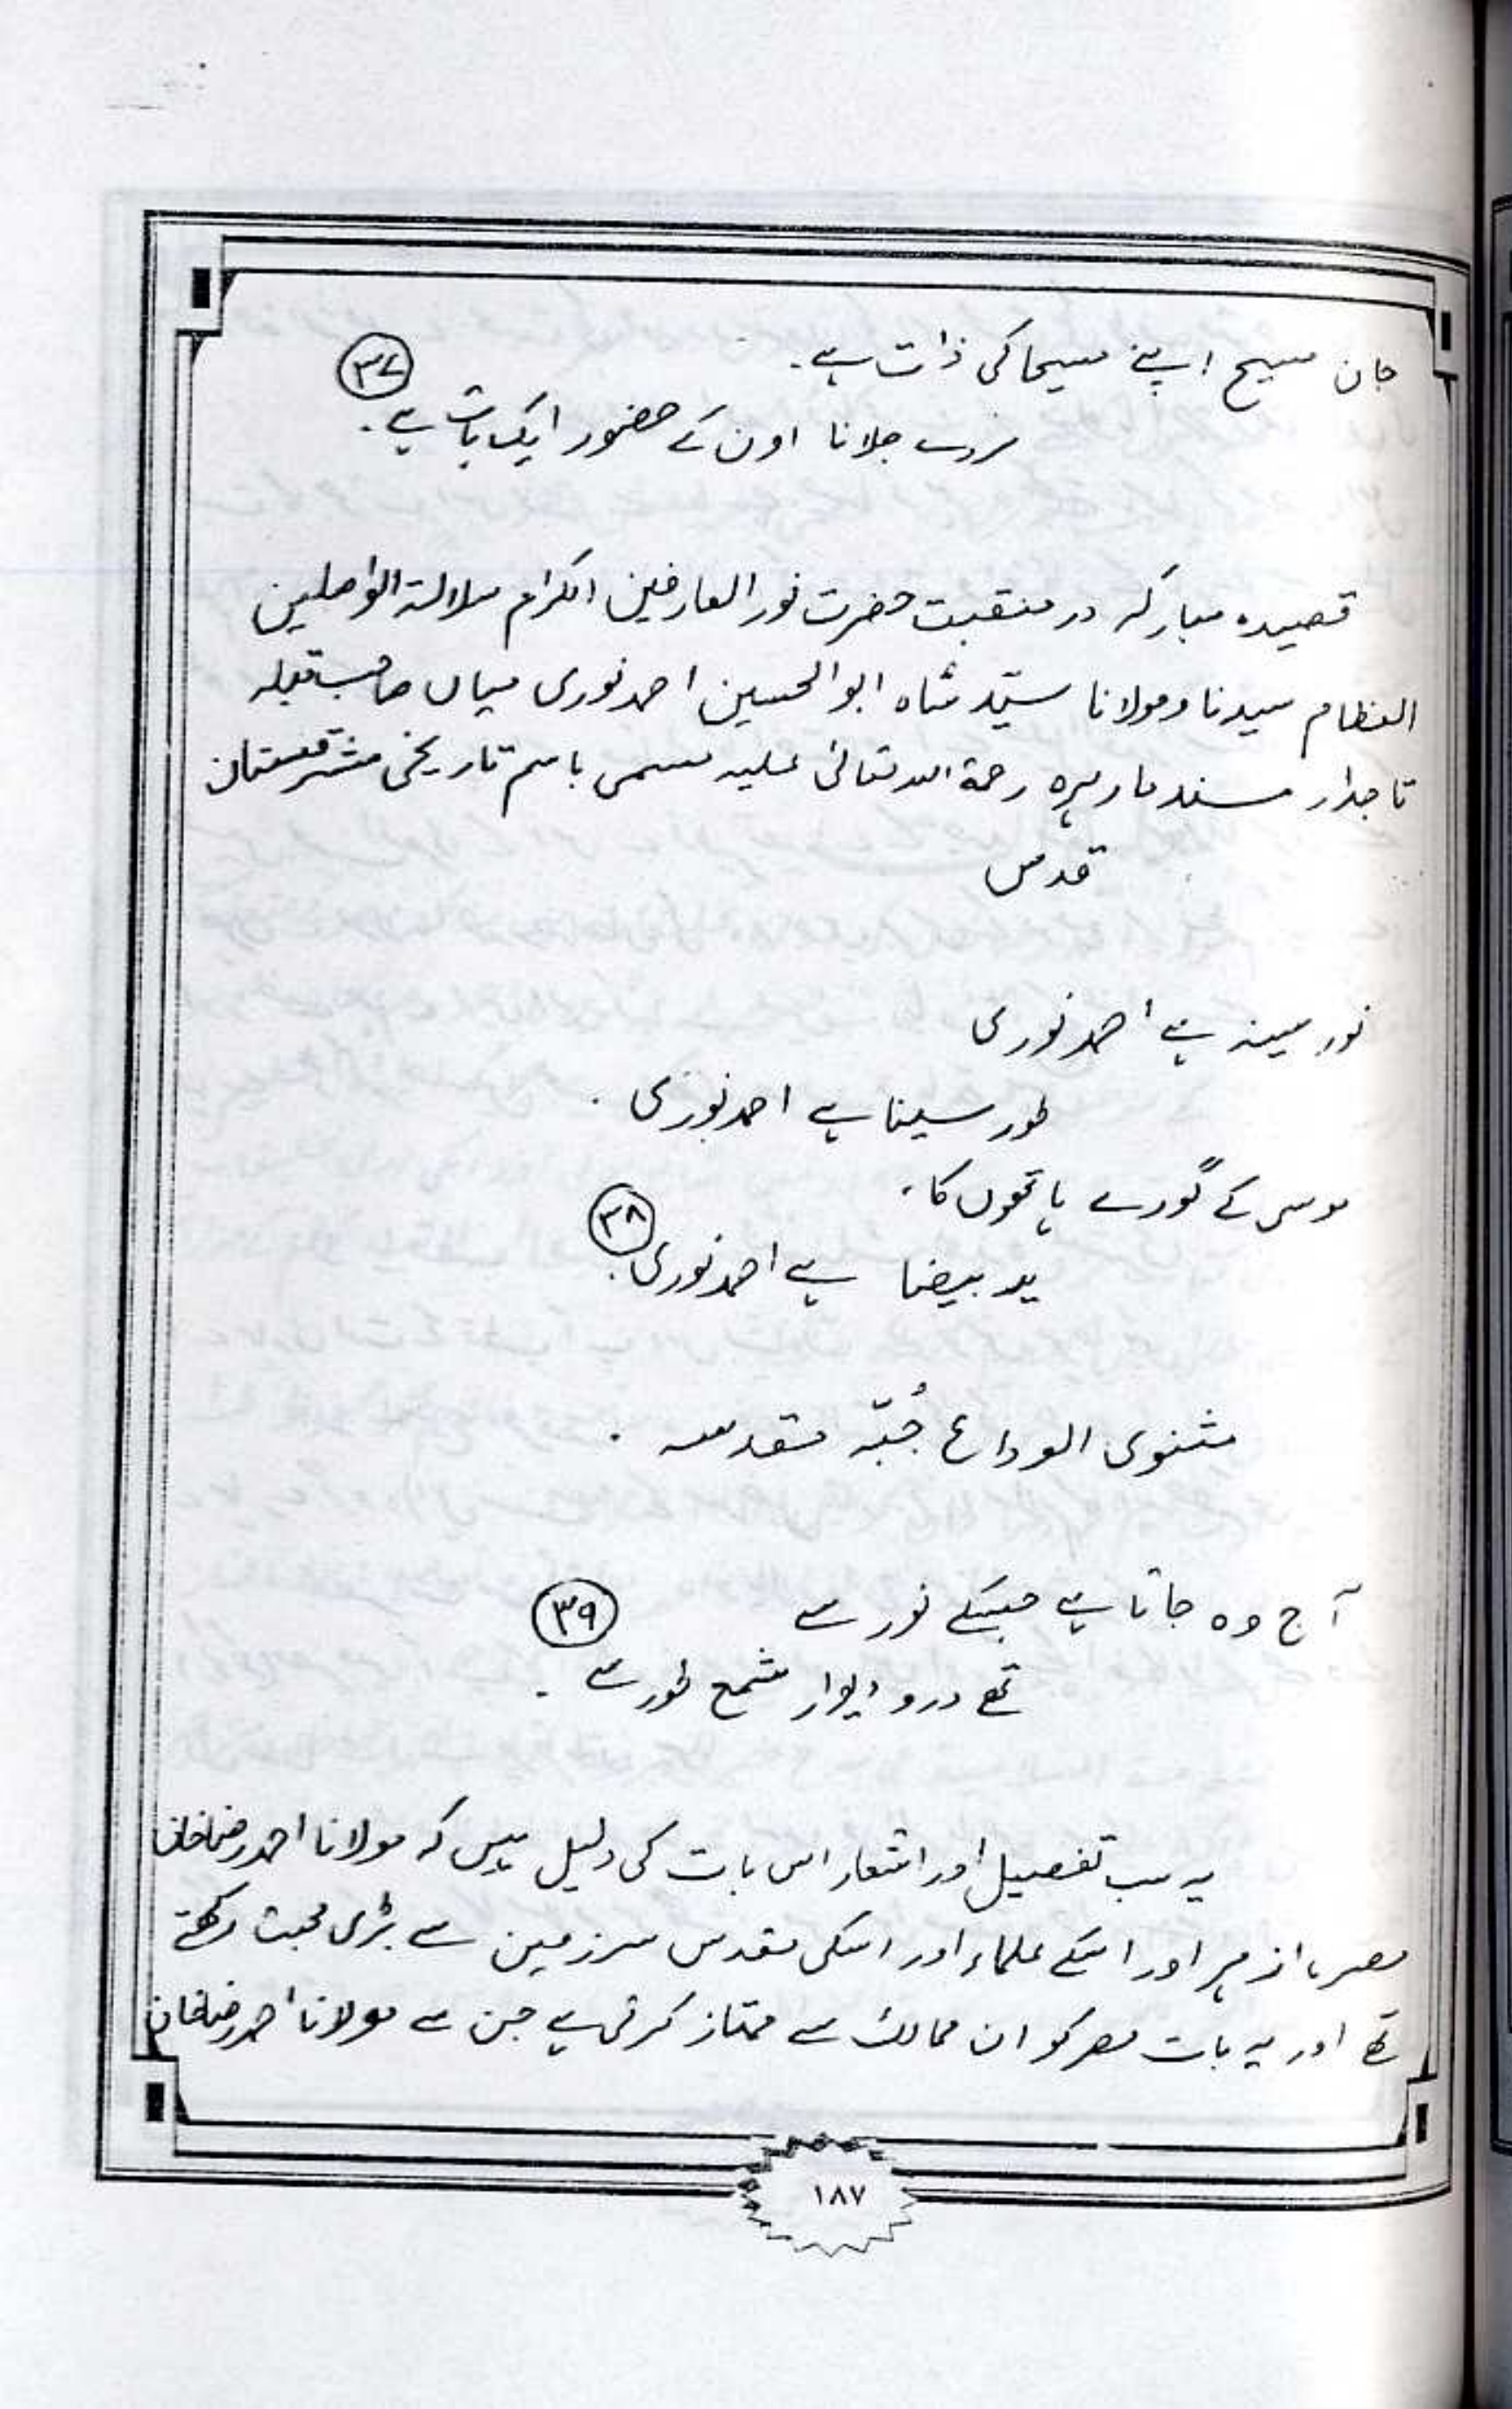 جان مسیح اپنے مسیحا کی ذات ہے۔
۳۷
مردے جلانا اون کے حضور ایک بات ہے۔
قصیدہ مبارکہ در منقبت حضرت نور العارفین الکرام سلالۃ الواصلین
العظام سیدنا و مولانا سیّد شاہ ابوالحسین احمد نوری میاں صاحب قبلہ
تاجدار مسند مارہرہ رحمۃ اللہ تعالیٰ علیہ مسمی باسم تاریخی مشرقستان
قدس
نور سینہ ہے احمد نوری
طور سینا ہے احمد نوری۔
موسی کے گورے ہاتھوں کا۔
۳۸
ید بیضا ہے احمد نوری۔
مثنوی الوداع جُبّہ مقدسہ۔
آج وہ جاتا ہے جسکے نور سے
۳۹
تھے در و دیوار شمع طور سے۔
یہ سب تفصیل اور اشعار اس بات کی دلیل ہیں کہ مولانا احمد رضاخان
مصر، ازہر اور اسکے علماء اور اسکی مقدس سرزمین سے بڑی محبت رکھتے
تھے اور یہ بات مصر کو ان ممالک سے ممتاز کرتی ہے جن سے مولانا احمد رضاخان
۱۸۷